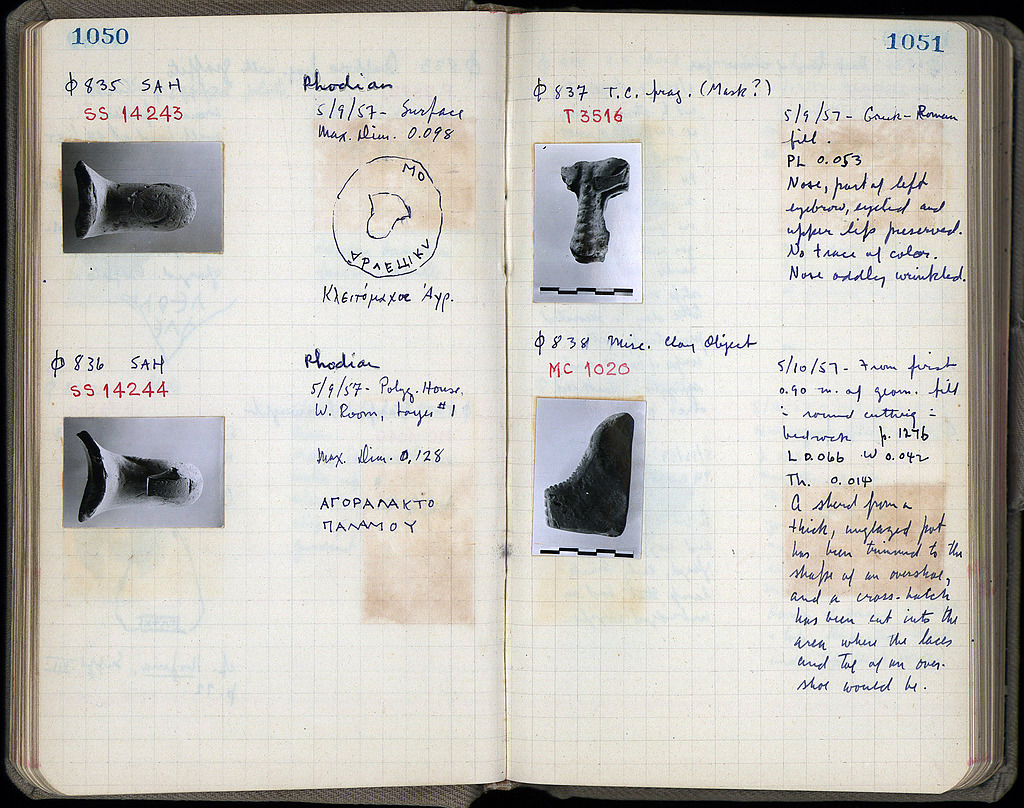 1050
Φ 835 SAH
SS 14243
Rhodian
5/9/57 - Surface
Max. Dim. 0.098
ΜΟ
Κλειτόμαχος Ἀγρ.
Φ 836 SAH
SS 14244
Rhodian
5/9/57 - Polyg. House,
W. Room, Layer #1
Max. Dim. 0,128
ΑΓΟΡΑΝΑΚΤΟ
ΠΑΝΑΜΟΥ
1051
Φ 837 T.C. frag. (Mask?)
T 3516
5/9/57 - Greek-Roman
fill.
PL 0.053
Nose, part of left
eyebrow, eyelid and
upper lip preserved.
No trace of color.
Nose oddly wrinkled.
Φ 838 Misc. Clay Object
MC 1020
5/10/57 - From first
0.90 m. of geom. fill
round cutting
bedrock p. 1276
L 0.066 W 0.042
Th. 0.014
A sherd from a
thick, unglazed pot
has been trimmed to the
shape of an overshoe,
and a cross-hatch
has been cut into the
area where the laces
and tag of an over-
shoe would be.